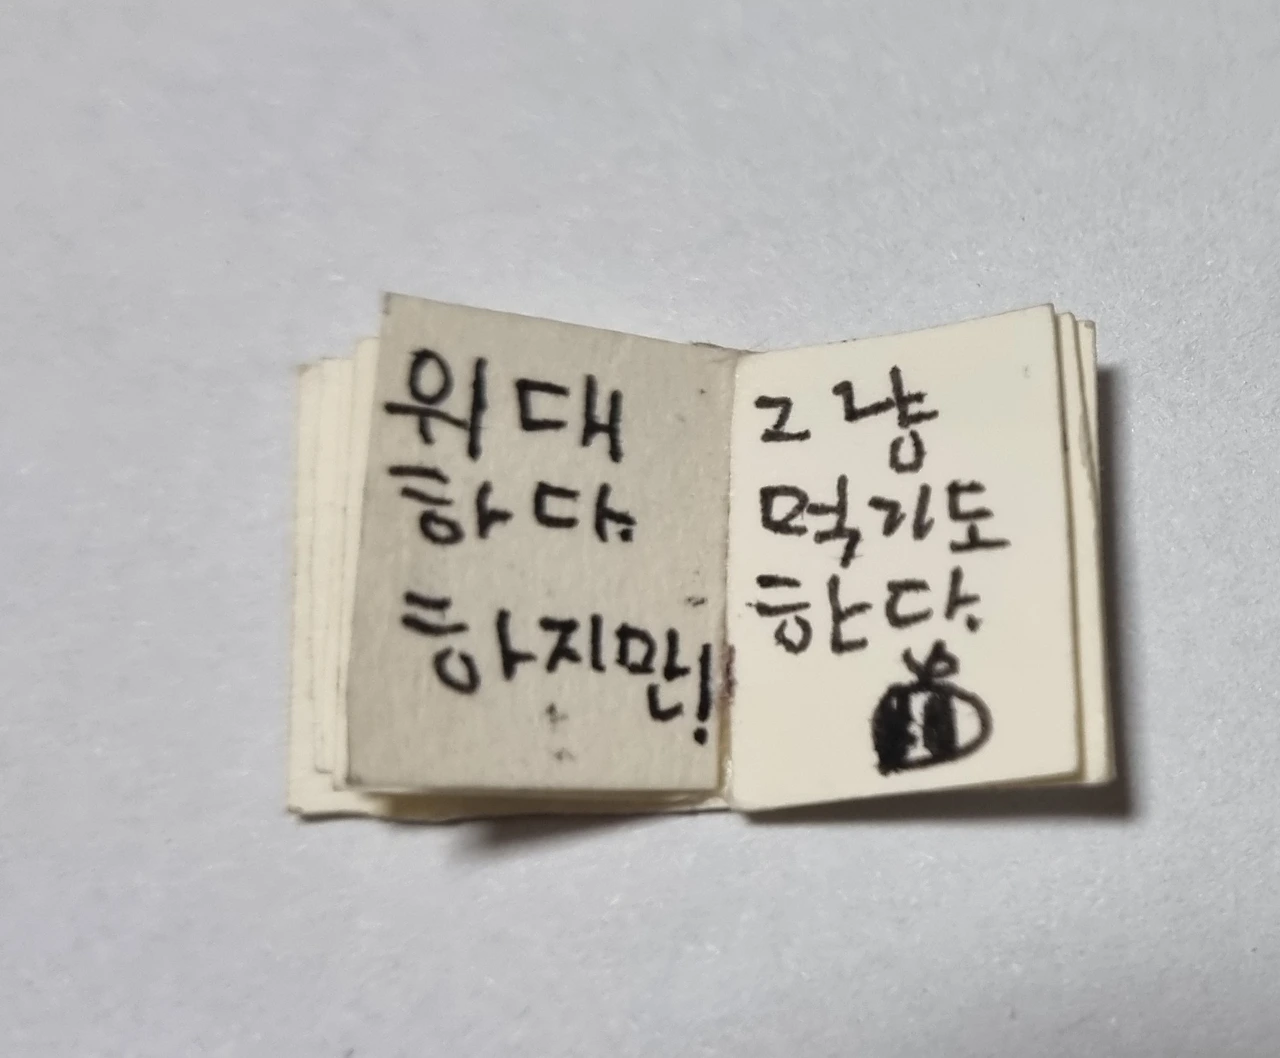 위대
하다.
하지만!
그냥
먹기도
한다.